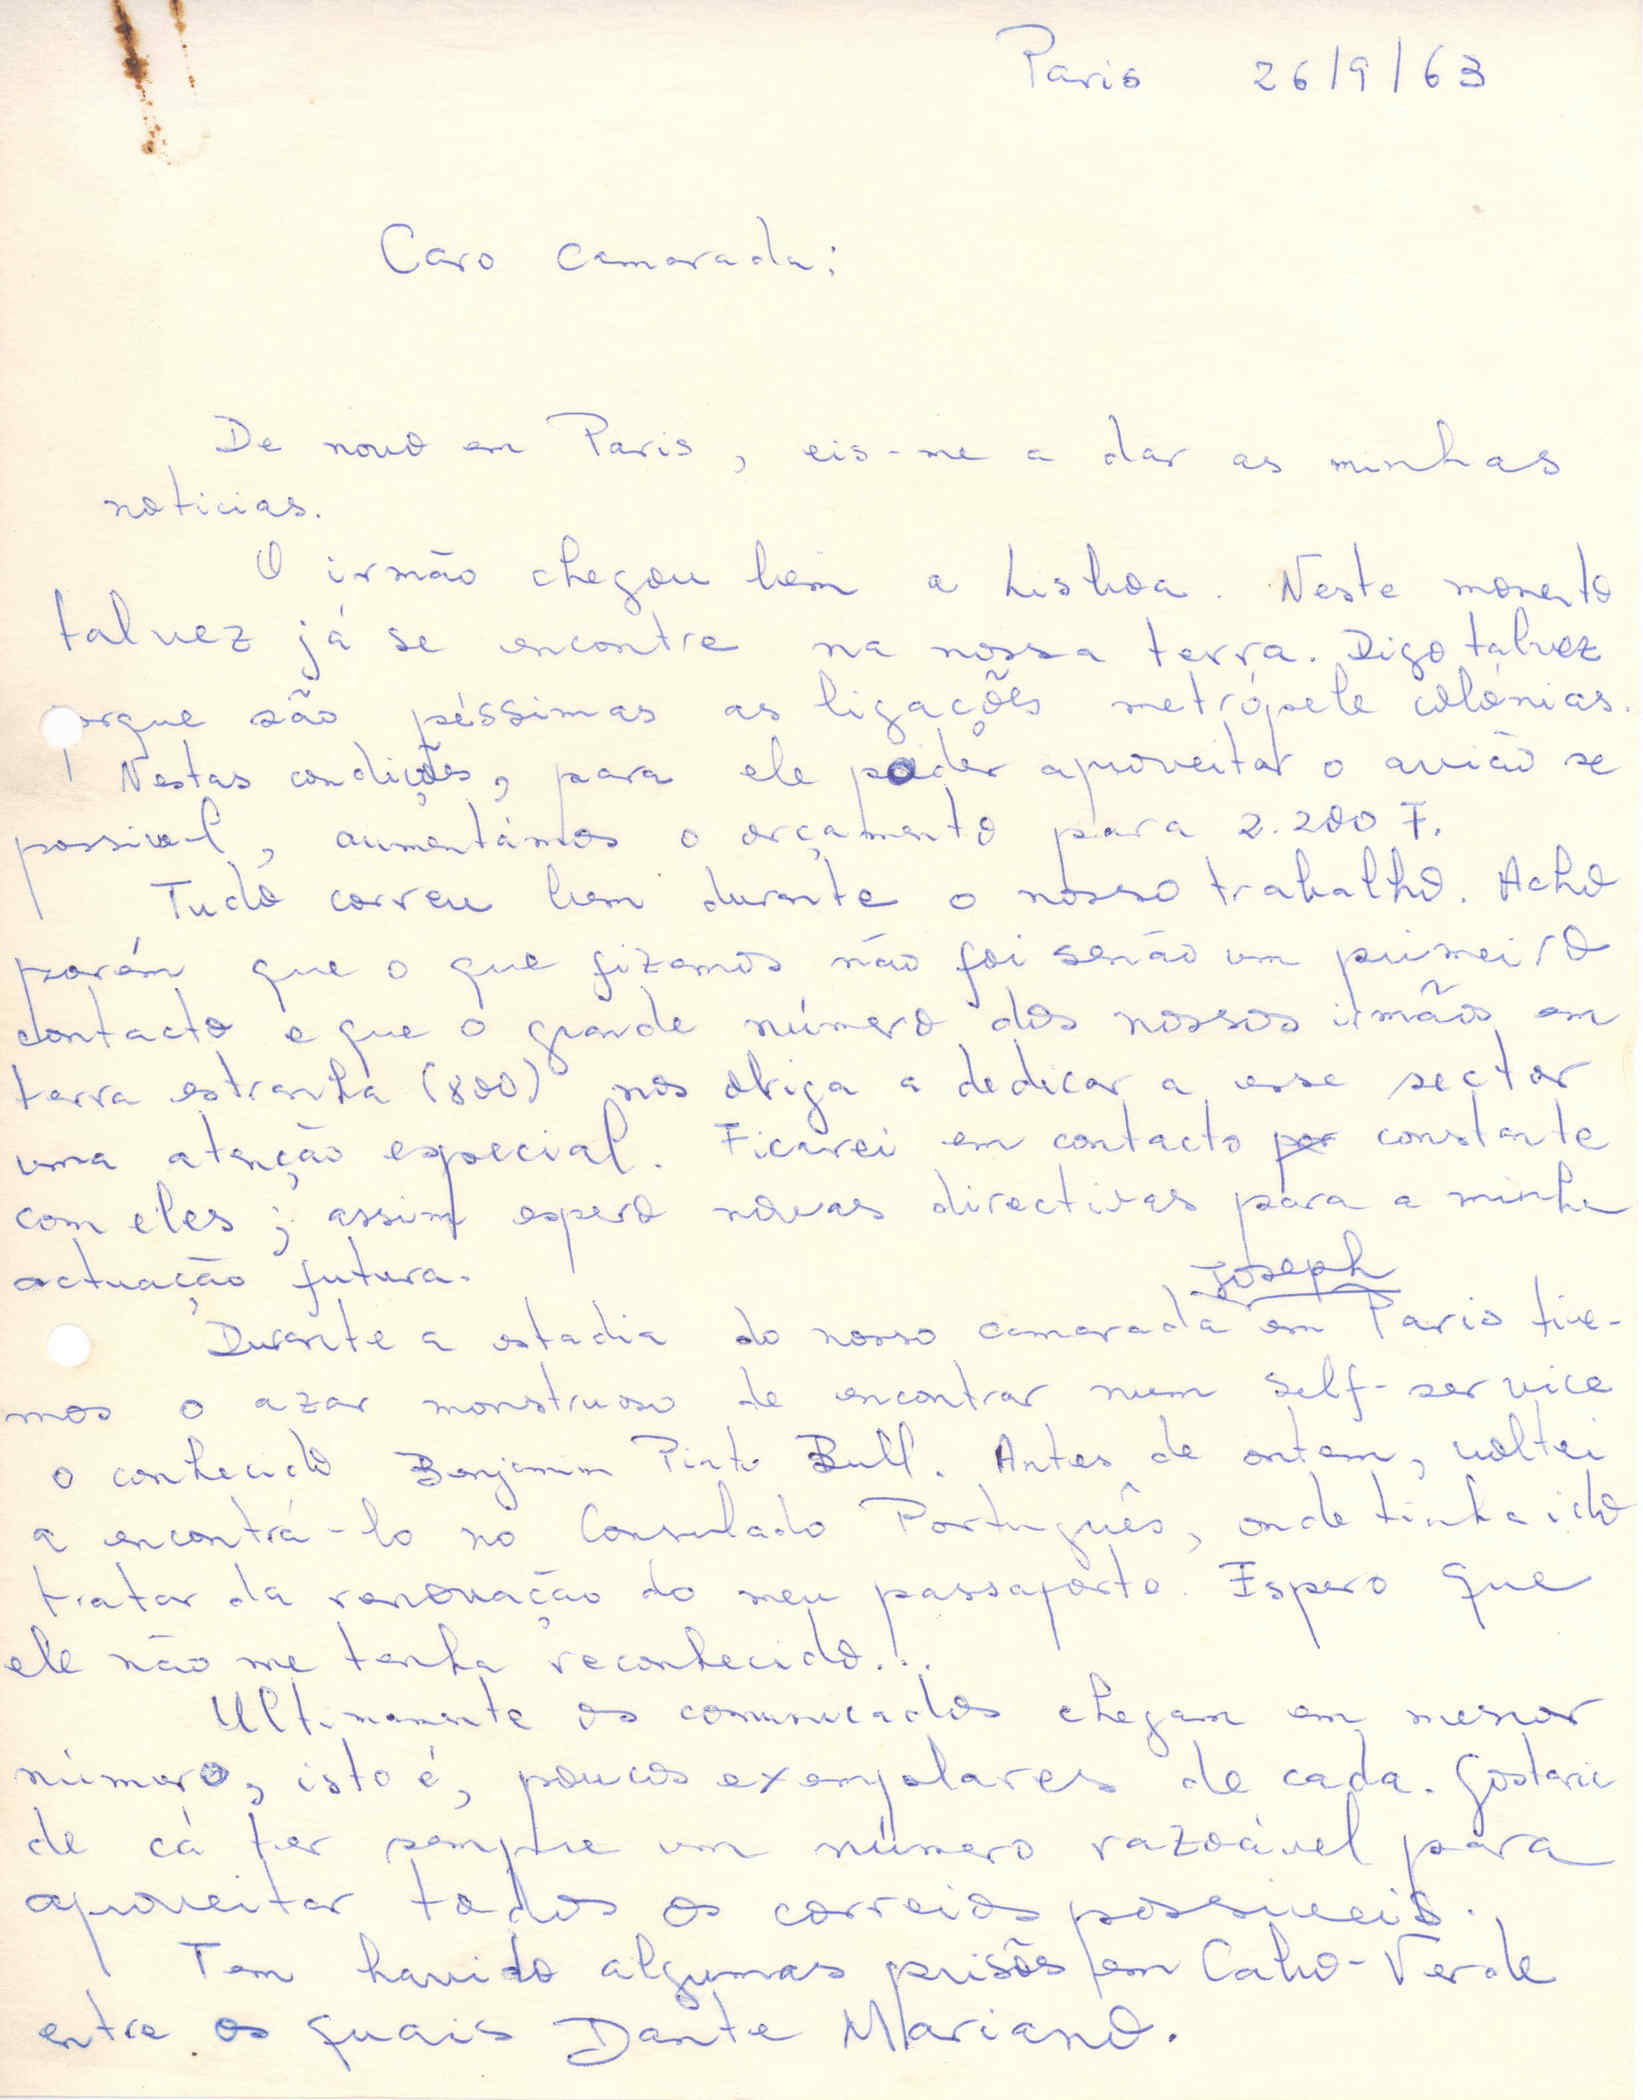 Paris 26/9/63
Caro camarada:
De novo em Paris, eis-me a dar as minhas
noticias.
O irmão chegou bem a Lisboa. Neste momento
talvez já se encontre na nossa terra. Digo talvez
porque são péssimas as ligações metrópole colónias.
Nestas condições, para ele poder aproveitar o avião se
possivel, aumentámos o orçamento para 2.200 F.
Tudo correu bem durante o nosso trabalho. Acho
porém que o que fizemos não foi senão um primeiro
contacto e que o grande número dos nossos irmãos em
terra estranha (800) nos obriga a dedicar a esse sector
uma atenção especial. Ficarei em contacto por constante
com eles; assim espero novas directivas para a minha
actuação futura.
Joseph
Durante a estadia do nosso camarada em Paris tive-
mos o azar monstruoso de encontrar num self-service
o conhecido Benjamim Pinto Bull. Antes de ontem, voltei
a encontrá-lo no Consulado Português, onde tinha ido
tratar da renovação do meu passaporte. Espero que
ele não me tenha reconhecido...
Ultimamente os comunicados chegam em menor
número, isto é, poucos exemplares de cada. Gostaria
de cá ter sempre um número razoável para
aproveitar todos os correios possiveis.
Tem havido algumas prisões em Cabo-Verde
entre os quais Dante Mariano.